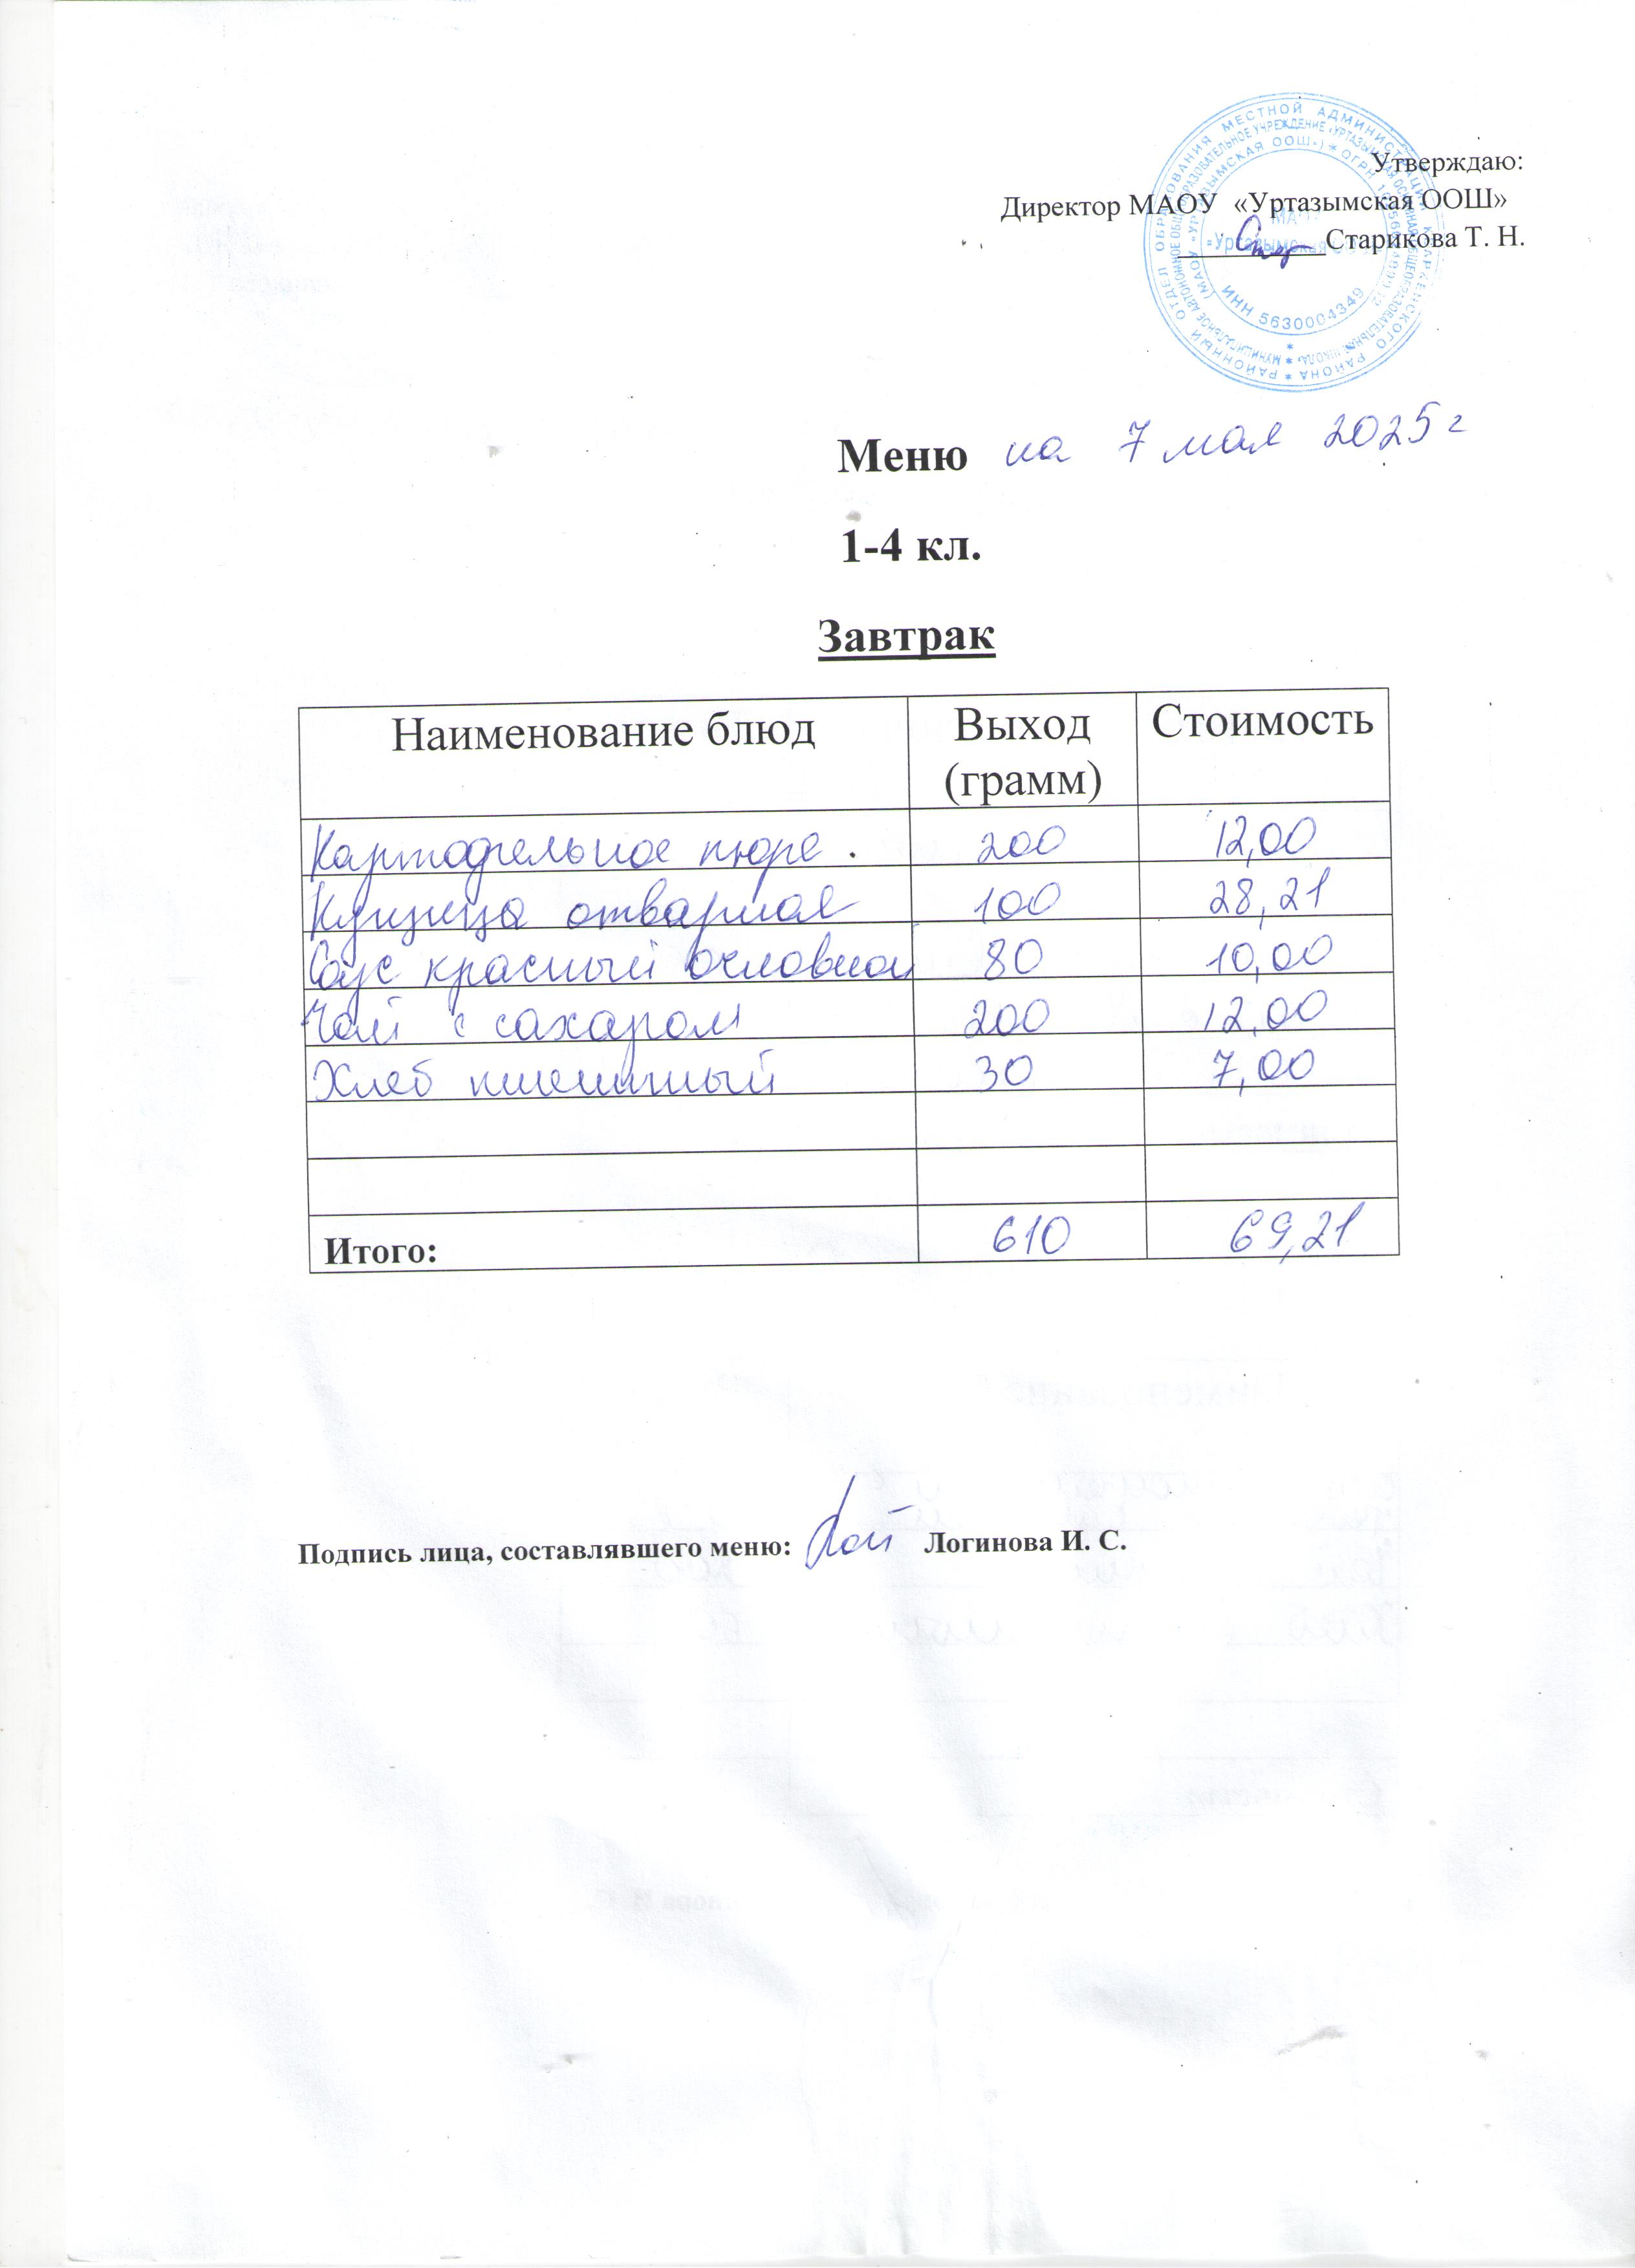 Утверждаю:
Директор МАОУ «Уртазымская ООШ»
Старикова Т. Н.
РАЙОННЫЙ ОТДЕЛ ОБРАЗОВАНИЯ МЕСТНОЙ АДМИНИСТРАЦИИ КВАРКЕНСКОГО РАЙОНА
(МАОУ «УРТАЗЫМСКАЯ ООШ») * ОГРН
ИНН 5630004349
Меню на 7 мая 2025 г
1-4 кл.
Завтрак
Наименование блюд Выход (грамм) Стоимость
Картофельное пюре . 200 12,00
Курица отварная 100 28,21
Соус красный основной 80 10,00
Чай с сахаром 200 12,00
Хлеб пшеничный 30 7,00
Итого: 610 69,21
Подпись лица, составлявшего меню: Логинова И. С.